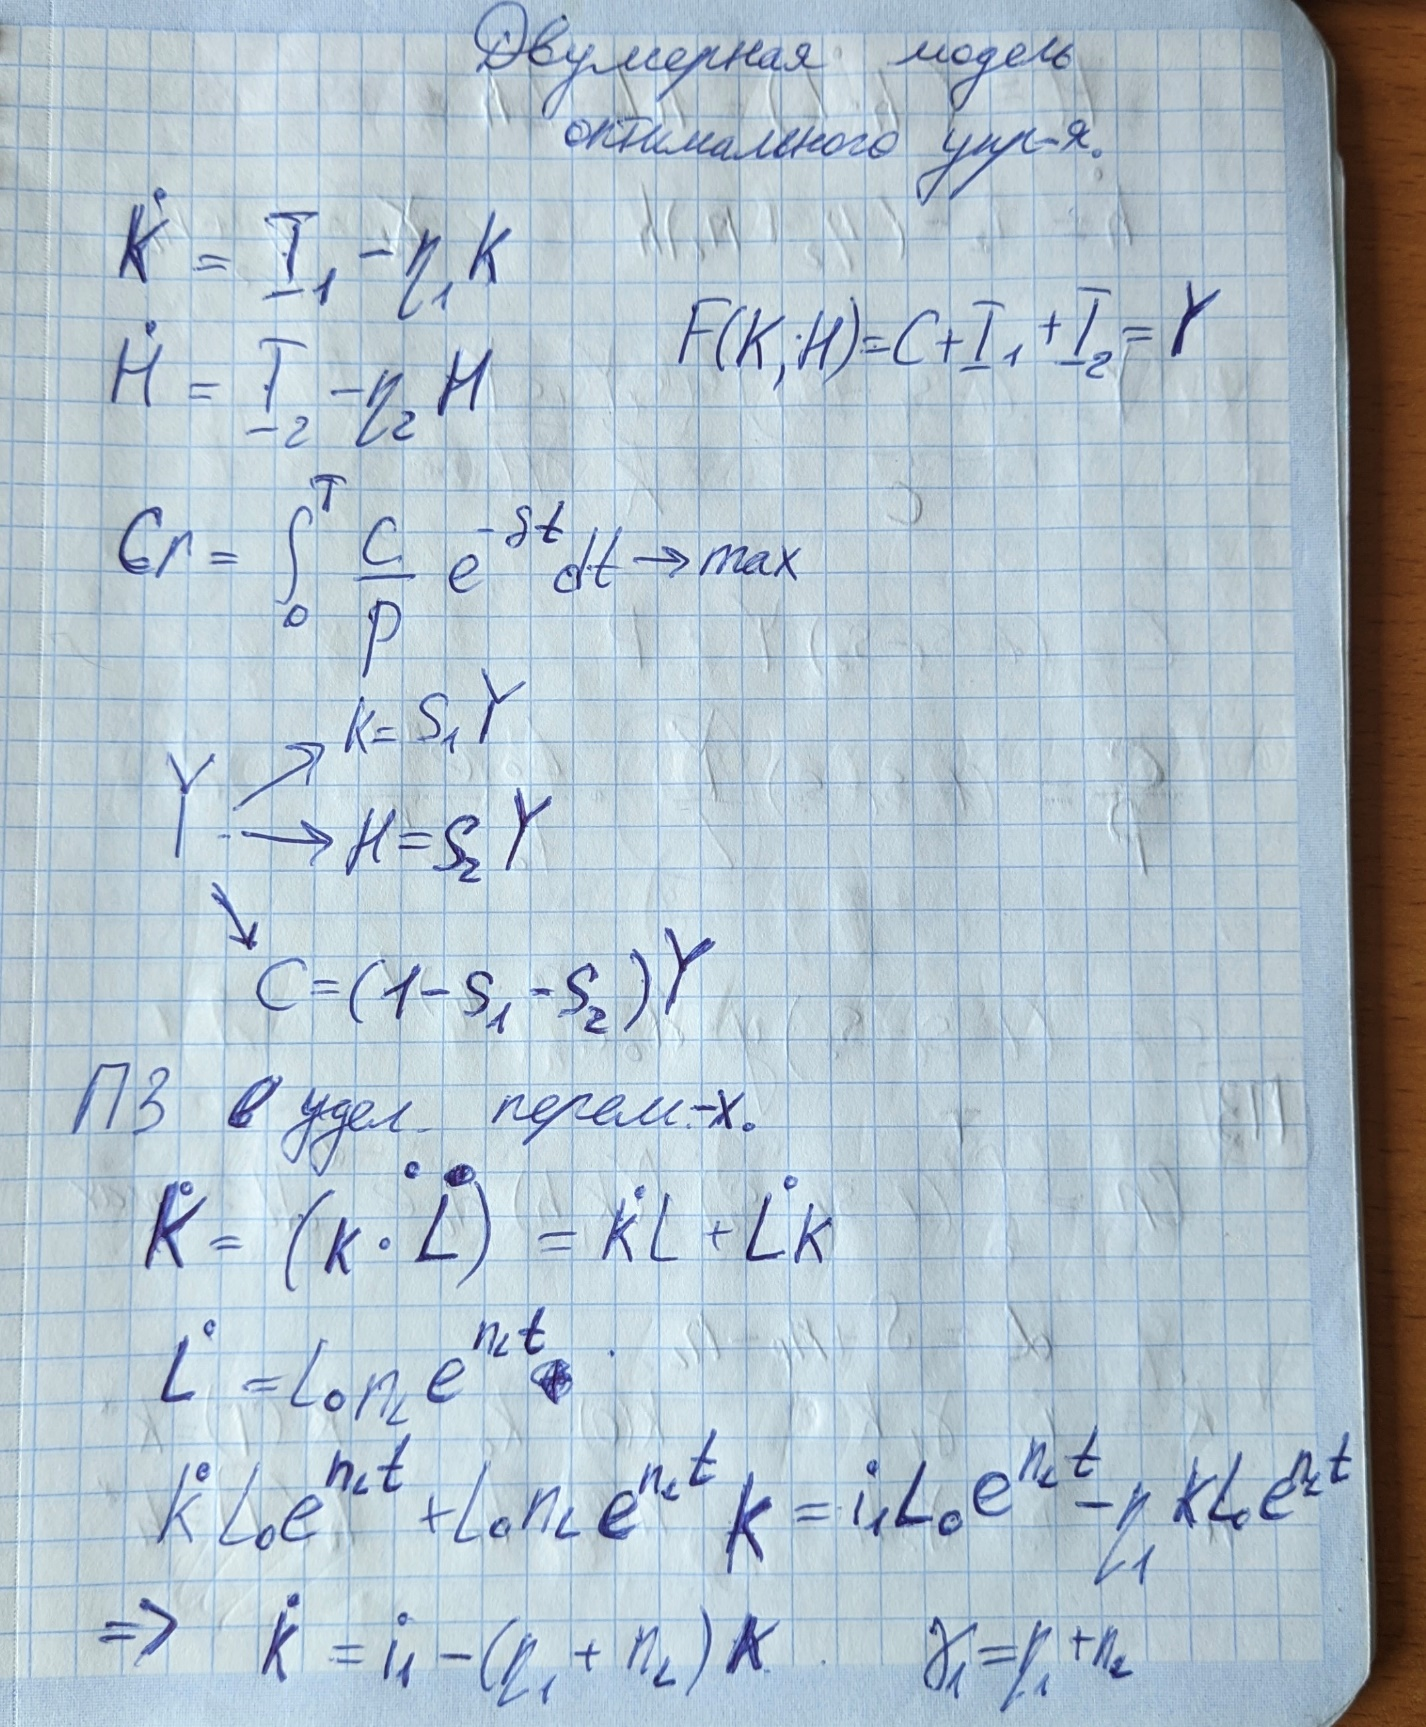 Двумерная модель
оптимального упр-я.
K̇ = I₁ - η₁K
F(K, H) = C + I₁ + I₂ = Y
Ḣ = I₂ - η₂H
Cr = ∫₀ᵀ C/P e^{-δt} dt → max
K = S₁Y
Y → H = S₂Y
C = (1 - S₁ - S₂)Y
ПЗ в удел. перем-х.
K̇ = (k · L)˙ = k̇L + L̇k
L̇ = L₀n_L e^{n_L t}
k̇L₀e^{n_L t} + L₀n_L e^{n_L t} k = i₁L₀e^{n_L t} - η₁ kL₀e^{n_L t}
=> k̇ = i₁ - (η₁ + n_L)k. γ₁ = η₁ + n_L